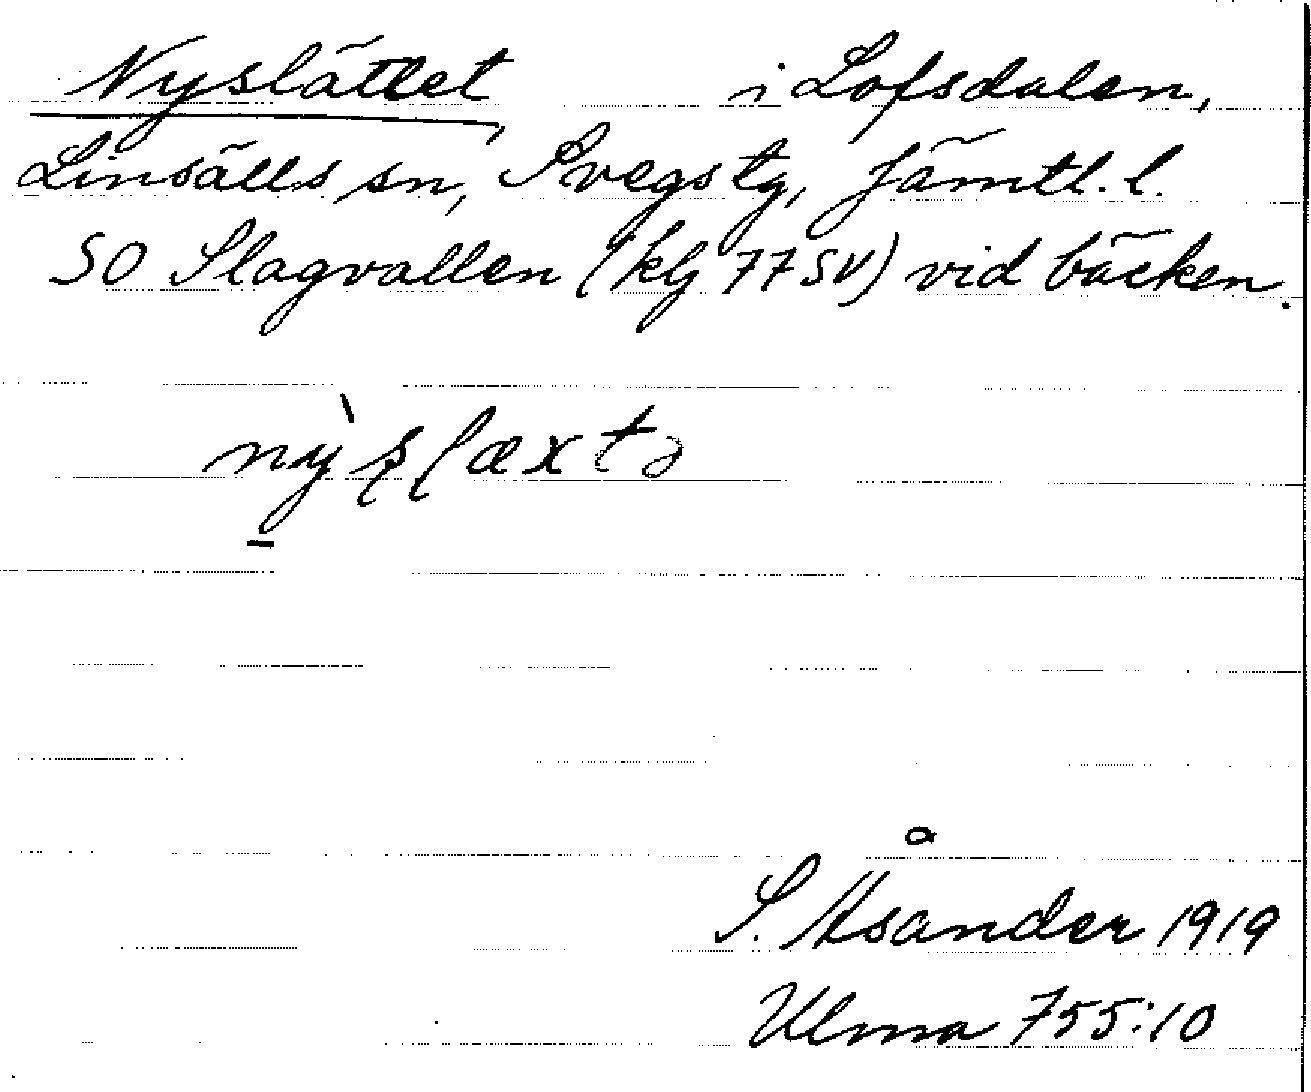 Nyslättet i Lofsdalen,
Linsälls sn, Svegs tg, Jämtl. l.
SO Slagvallen (kbl 77 SV) vid bäcken.
S. Åsander 1919
Ulma 755:10